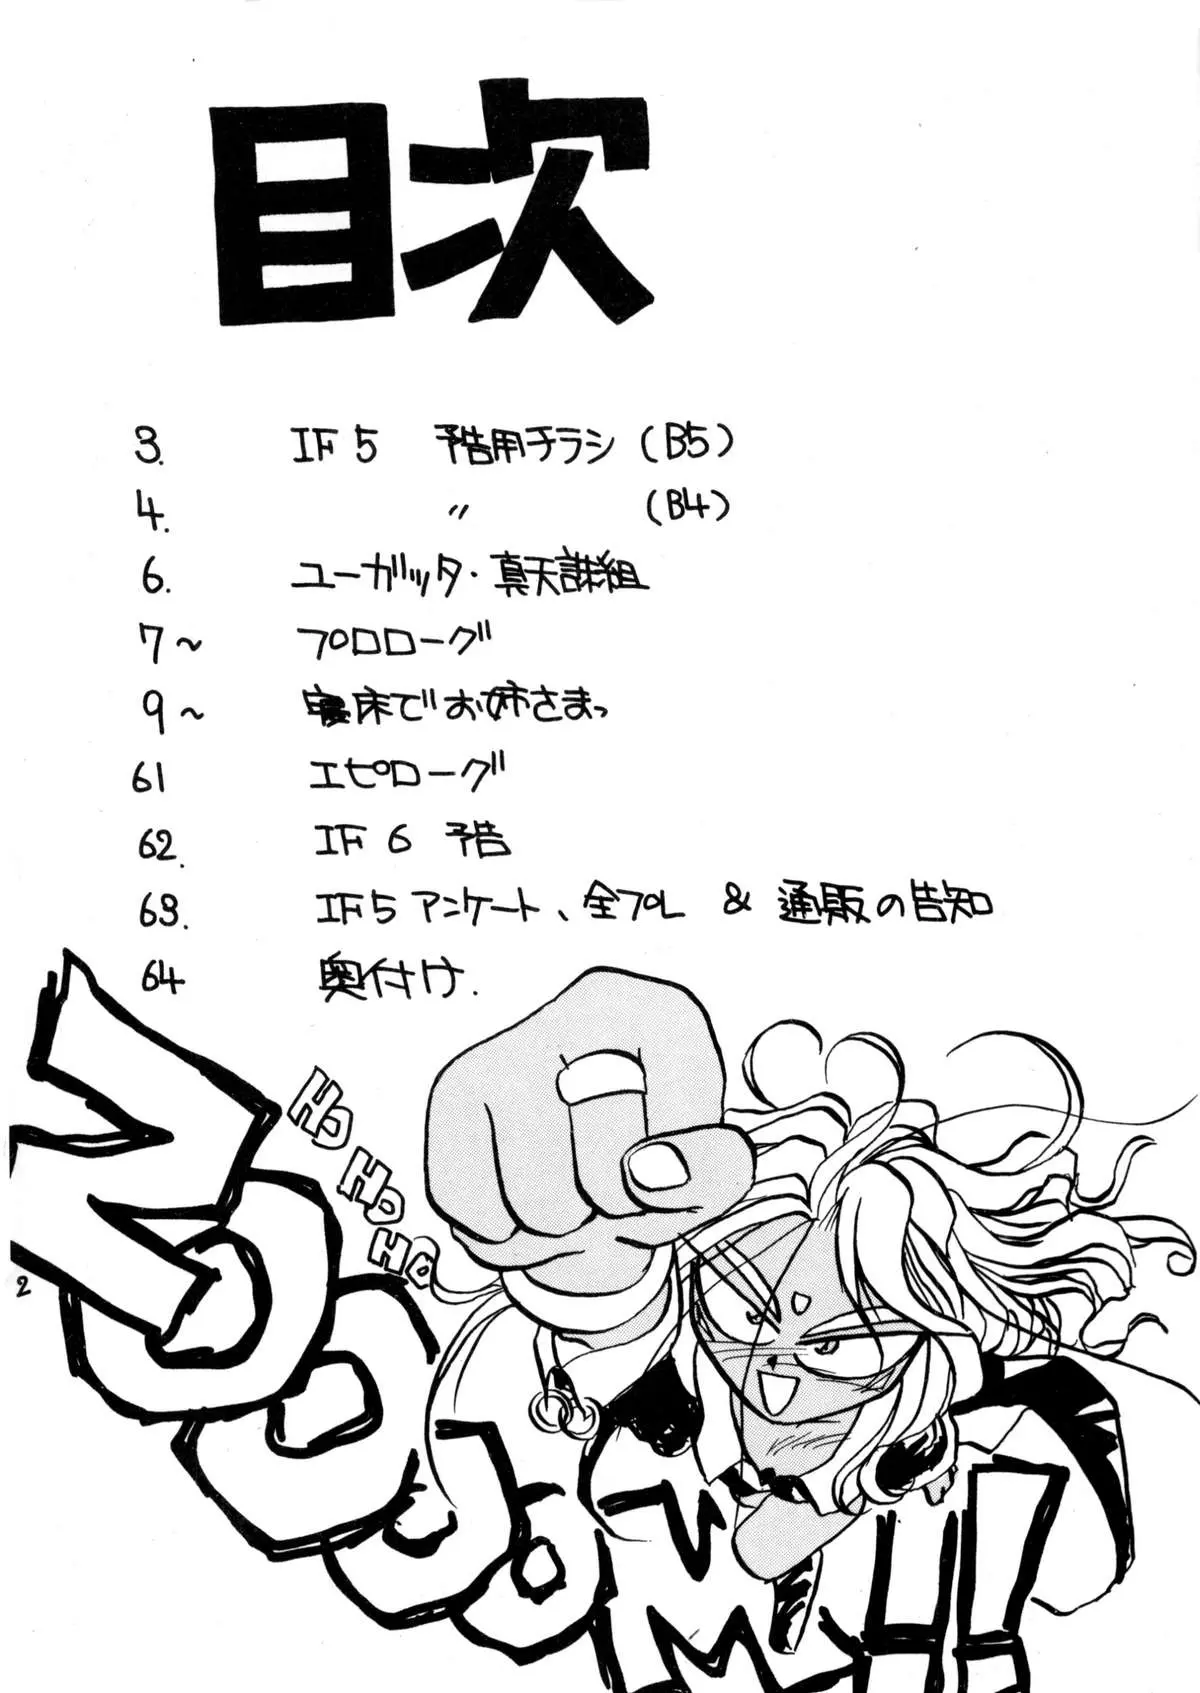 目次
3. IF5 予告用チラシ (B5)
4. 〃 (B4)
6. ユーガッタ・真天誅組
7～ プロローグ
9～ 寝床でお姉さまっ
61 エピローグ
62. IF6 予告
63. IF5アンケート、全プレ & 通販の告知
64 奥付け.
HO HO HO
ZOOOOOM!!
2